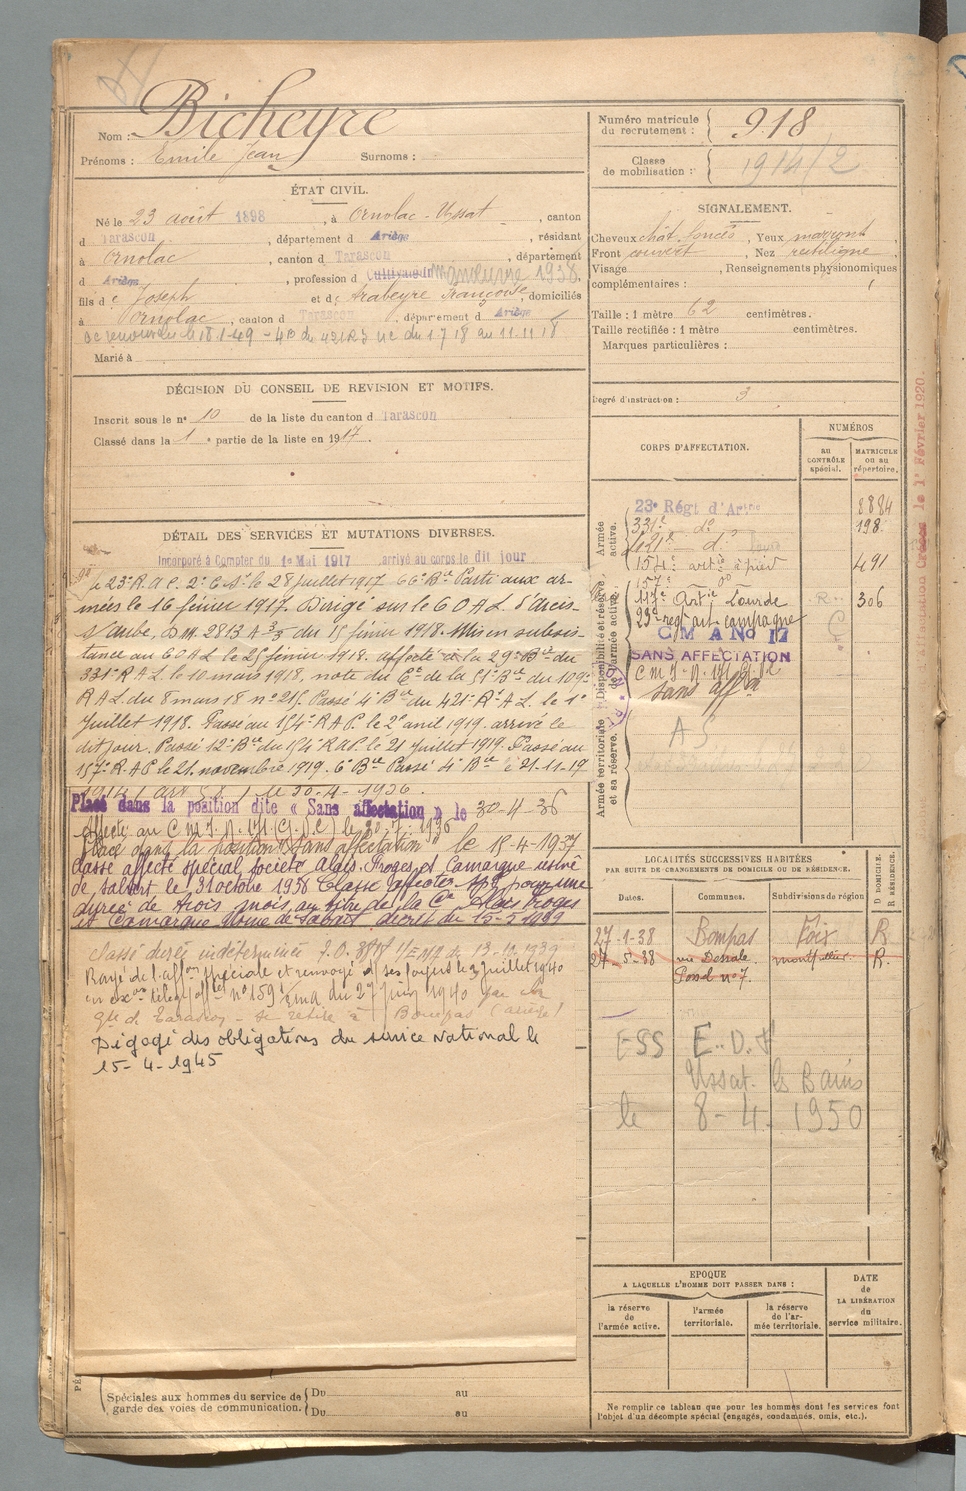 Nom : Bicheyre
Prénoms : Emile Jean Surnoms :
Numéro matricule du recrutement : 918
Classe de mobilisation : 1914/2
ÉTAT CIVIL.
Né le 23 août 1898, à Ornolac-Ussat, canton
d Tarascon, département d Ariège, résidant
à Ornolac, canton d Tarascon, département
d Ariège, profession d Cultivateur manœuvre 1938.
fils de Joseph et de Arabeyre Françoise, domiciliés
à Ornolac, canton d Tarascon, département d Ariège
le 18-1-49 - 4B du 421 R UC du 1 7 18 au 11.11 18
Marié à
SIGNALEMENT.
Cheveux chât foncés, Yeux marront
Front couvert, Nez rectiligne
Visage , Renseignements physionomiques
complémentaires :
Taille : 1 mètre 62 centimètres.
Taille rectifiée : 1 mètre centimètres.
Marques particulières :
Degré d'instruction : 3
DÉCISION DU CONSEIL DE REVISION ET MOTIFS.
Inscrit sous le n° 10 de la liste du canton d Tarascon
Classé dans la 1e partie de la liste en 1917.
DÉTAIL DES SERVICES ET MUTATIONS DIVERSES.
Incorporé à Compter du 1er Mai 1917 arrivé au corps le dit jour
23e R.A.C. 2e C.S. le 28 juillet 1917. 66e Bie Parti aux ar-
mées le 16 février 1917. Dirigé sur le 60 A.L. d'Arcis-
s/aube, D.M. 2813 A 3/3 du 15 février 1918. Mis en subsis-
tance au 60 A.L. le 25 février 1918. affecté à la 29e Bie du
331e R.A.L. le 10 mars 1918, note du Ct de la 51e Bie du 109e
R.A.L. du 8 mars 18 n° 215. Passé 4e Bie du 421e R.A.L. le 1er
Juillet 1918. Passé au 154e R.A.P. le 2 avril 1919. arrivé le
dit jour. Passé 12e Bie du 154e R.A.P. le 21 Juillet 1919. Passé au
157e R.A.P. le 21 novembre 1919. 6e Bie Passé 4e Bie le 21-11-19
1914 (art 58) le 30-4-1936.
Placé dans la position dite « Sans affectation » le 30-4-36
Affecté au C.M.I.R. 171 (G.D.C) le 30.7.1936
Placé dans la position "Sans affectation" le 15-4-1937
Classé affecté spécial société Alais Froges et Camargue usine
de sabart le 31 octobre 1938 Classé affecter spé pour une
durée de trois mois, au titre de la Cie Alais Froges
et Camargue Usine de sabart décret du 15-5-1939
Classé durée indéterminée
Rayé de l'affon spéciale et renvoyé ds ses foyers le 3 juillet 1940
en exon télég offel n° 159 1/EMA du 27 Juin 1940 par
gie d Tarascon - se retire à Bompas (ariège)
Dégagé des obligations du service National le
15-4-1945
CORPS D'AFFECTATION.
NUMÉROS
au CONTRÔLE spécial.
MATRICULE ou au répertoire.
Armée active.
23e Régt d'Artie 2884
331e do 198
421e do Lourd
154e artie à pied 491
157e do
Disponibilité et réserve de l'armée active.
117e Artie Lourde R 306
23e regt art campagne
C M A No 17
SANS AFFECTATION
C M I R 171 G.D.C
Sans affon
Armée territoriale et sa réserve.
A S
Affectation Creées le 1er Février 1920.
LOCALITÉS SUCCESSIVES HABITÉES
PAR SUITE DE CHANGEMENTS DE DOMICILE OU DE RÉSIDENCE.
Dates. Communes. Subdivisions de région D DOMICILE. R RÉSIDENCE.
27-1-38 Bompas Foix R
27-5-38 rue Desrale. montpellier. R.
n° 7.
ESS E.D.F
Ussat les Bains
le 8-4-1950
EPOQUE
A LAQUELLE L'HOMME DOIT PASSER DANS :
la réserve de l'armée active.
l'armée territoriale.
la réserve de l'armée territoriale.
DATE de LA LIBÉRATION du service militaire.
Spéciales aux hommes du service de garde des voies de communication.
Du au
Du au
Ne remplir ce tableau que pour les hommes dont les services font
l'objet d'un décompte spécial (engagés, condamnés, omis, etc.).